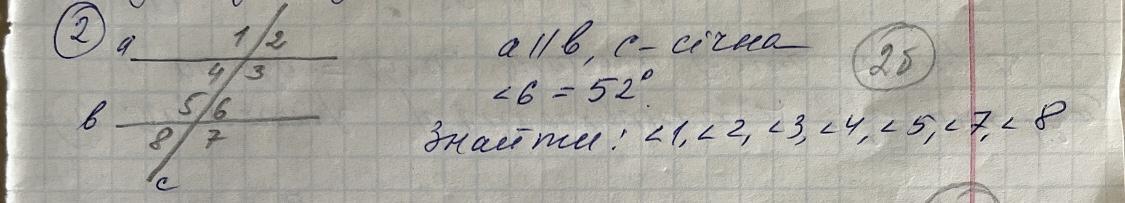 2
a 1 2
4 3
в 5 6
8 7
c
a || в, c - січна
∠6 = 52°.
Знайти: ∠1, ∠2, ∠3, ∠4, ∠5, ∠7, ∠8
2б